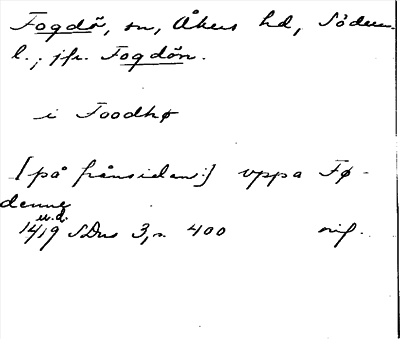 Fogdö, sn, Åkers hd, Söderm.
l.; jfr. Fogdön.
i Foodhø
[på frånsidan:] uppa Fø-
denne
u.d.
1419 SDns 3, s. 400 orig.